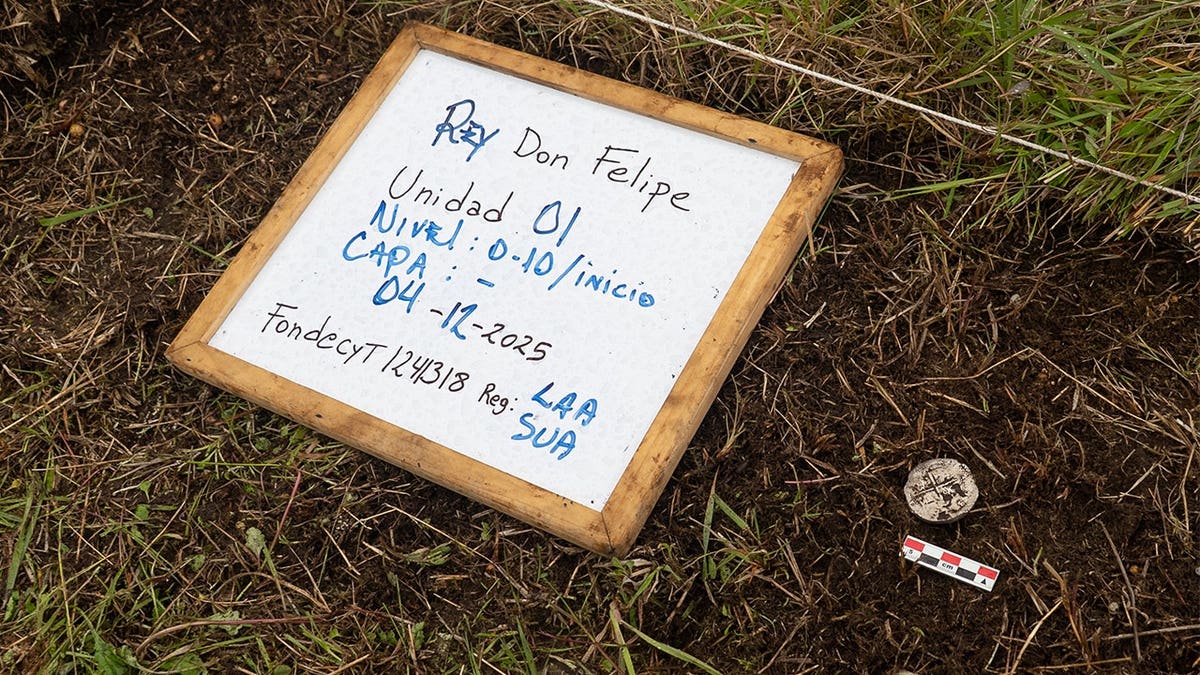 REY Don Felipe
Unidad 01
NIVEl: 0-10/inicio
CAPA: -
04-12-2025
FondecyT 1241318 Reg: LAA
SUA
5 cm